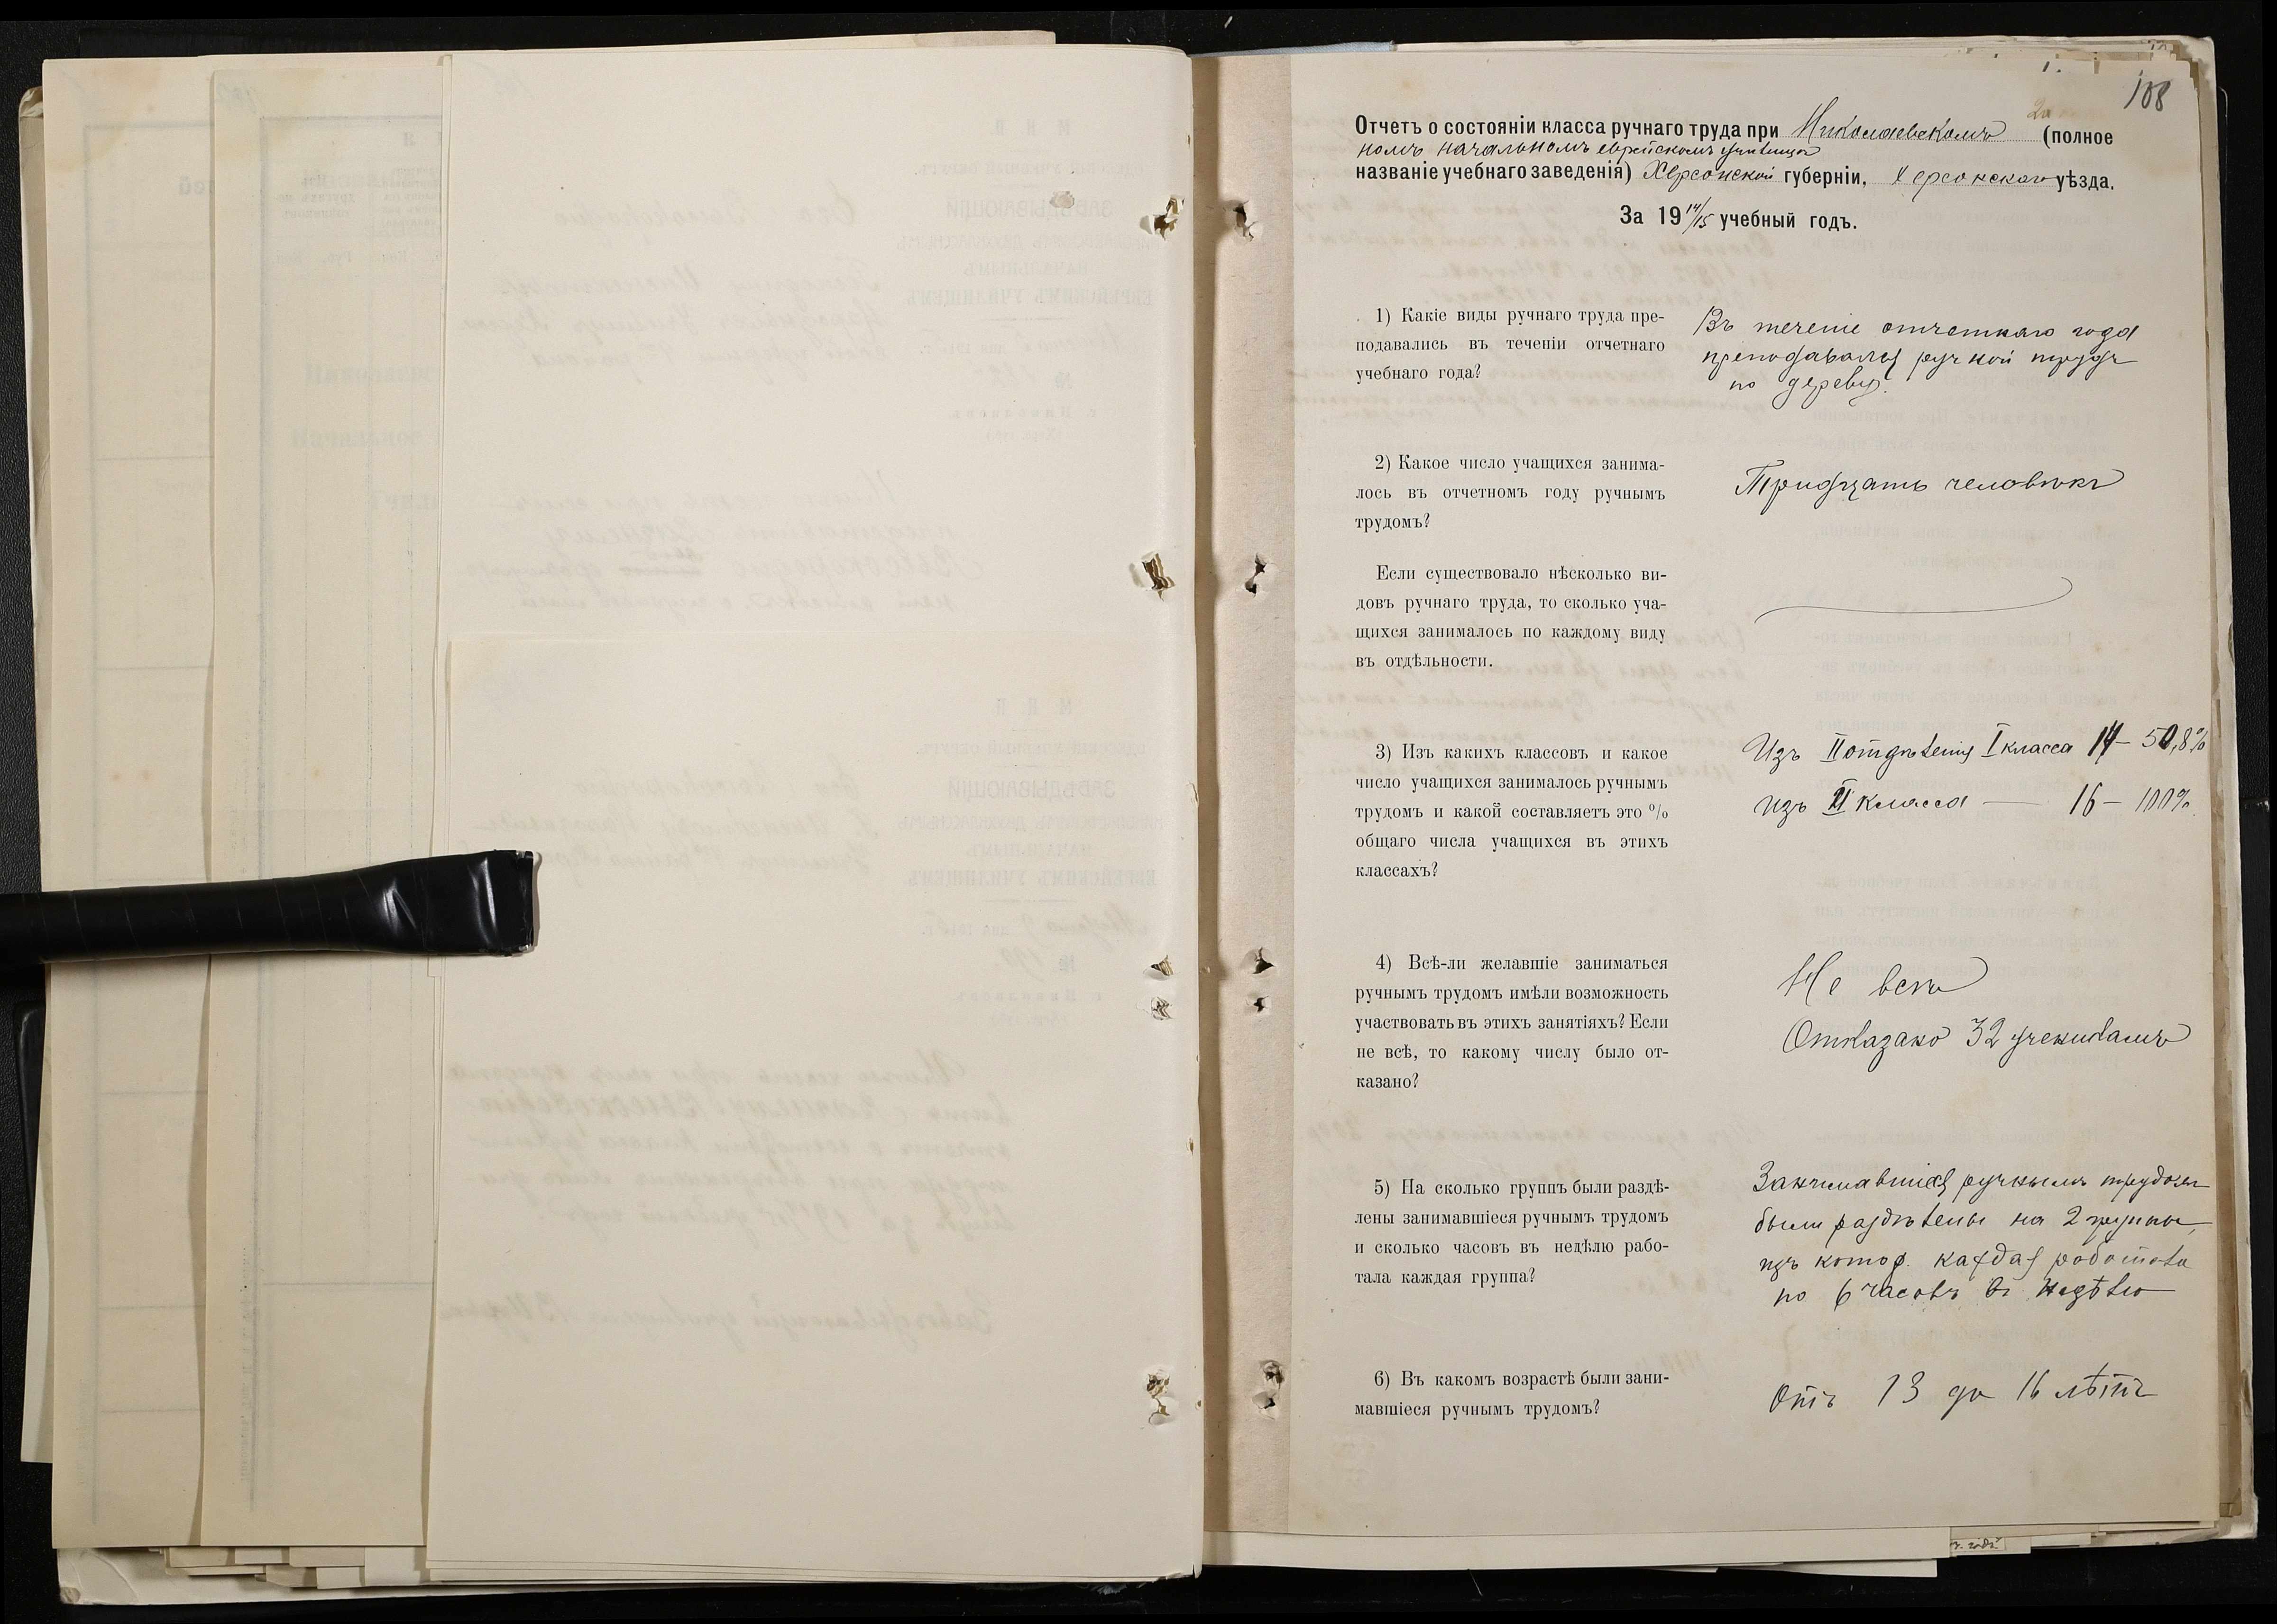 108
Отчетъ о состояніи класса ручнаго труда при Николаевскомъ 2х (полное
номъ начальномъ еврейскомъ училищѣ
названіе учебнаго заведенія) Херсонской губерніи, Херсонскаго уѣзда.
За 19 14/15 учебный годъ.
1) Какіе виды ручнаго труда пре-
подавались въ теченіи отчетнаго
учебнаго года?
Въ теченіе отчетнаго года
преподавался ручной трудъ
по дереву.
2) Какое число учащихся занима-
лось въ отчетномъ году ручнымъ
трудомъ?
Тридцать человѣкъ
Если существовало нѣсколько ви-
довъ ручнаго труда, то сколько уча-
щихся занималось по каждому виду
въ отдѣльности.
3) Изъ какихъ классовъ и какое
число учащихся занималось ручнымъ
трудомъ и какой составляетъ это %
общаго числа учащихся въ этихъ
классахъ?
Изъ II отдѣленія I класса 14 – 50,8%
изъ II класса — 16 – 100%.
4) Всѣ-ли желавшіе заниматься
ручнымъ трудомъ имѣли возможность
участвовать въ этихъ занятіяхъ? Если
не всѣ, то какому числу было от-
казано?
Не всѣ
Отказано 32 ученикамъ
5) На сколько группъ были раздѣ-
лены занимавшіеся ручнымъ трудомъ
и сколько часовъ въ недѣлю рабо-
тала каждая группа?
Занимавшіеся ручнымъ трудомъ
были раздѣлены на 2 группы,
изъ котор. каждая работала
по 6 часовъ въ недѣлю
6) Въ какомъ возрастѣ были зани-
мавшіеся ручнымъ трудомъ?
Отъ 13 до 16 лѣтъ